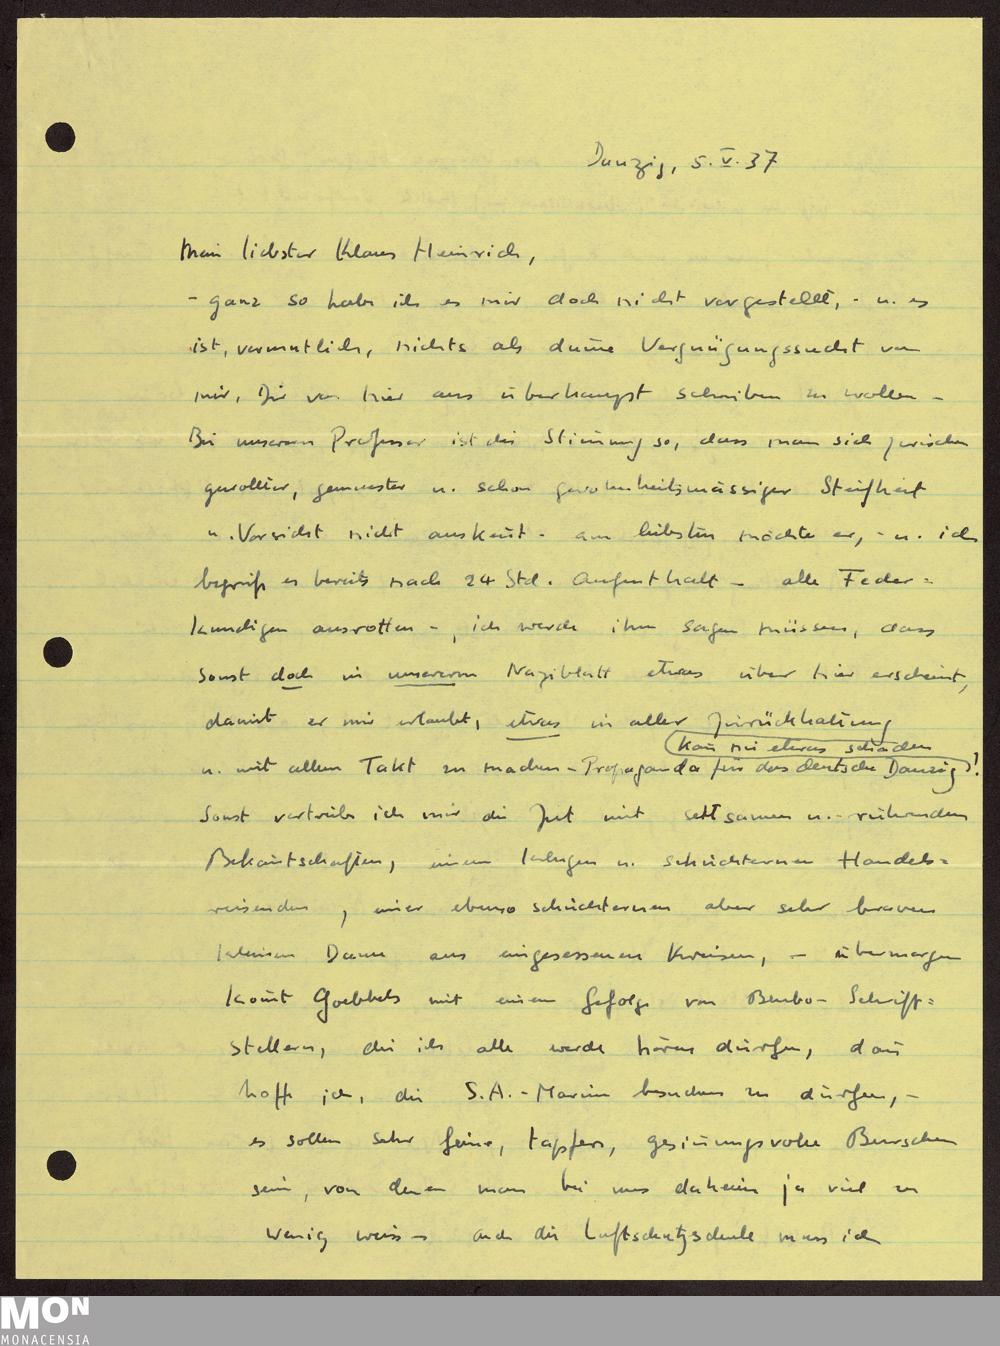 Danzig, 5. V. 37
Mein liebster Klaus Heinrich,
- ganz so habe ich es mir doch nicht vorgestellt, - u. es
ist, vermutlich, nichts als dum̅e Vergnügungssucht von
mir, Dir von hier aus überhaupt schreiben zu wollen -
Bei unserem Professor ist die Stim̅ung so, dass man sich zwischen
gewollter, gemusster u. schon gewohnheitsmässiger Steifheit
u. Vorsicht nicht auskeñt - am liebsten möchte er, - u. ich
begriff es bereits nach 24 Std. Aufenthalt - alle Feder=
kundigen ausrotten -, ich werde ihm sagen müssen, dass
sonst doch in unserem Naziblatt etwas über hier erscheint,
damit er mir erlaubt, etwas in aller Zurückhaltung
(kañ nie etwas schaden
u. mit allem Takt zu machen - Propaganda für das deutsche Danzig)!
Sonst vertreibe ich mir die Zeit mit seltsamen u. rührenden
Bekañtschaften, einem klugen u. schüchternen Handels=
reisenden, einer ebenso schüchternen aber sehr braven
kleinen Dame aus eingesessenen Kreisen, - übermorgen
kom̅t Goebbels mit einem Gefolge von Schrift=
stellern, die ich alle werde hören dürfen, dañ
hoffe ich, die S.A.-Marine besuchen zu dürfen, -
es sollen sehr feine, tapfere, gesiñungsvolle Burschen
sein, von denen man bei uns daheim ja viel zu
wenig weiss - auch die Luftschutzschule muss ich
MON
MONACENSIA